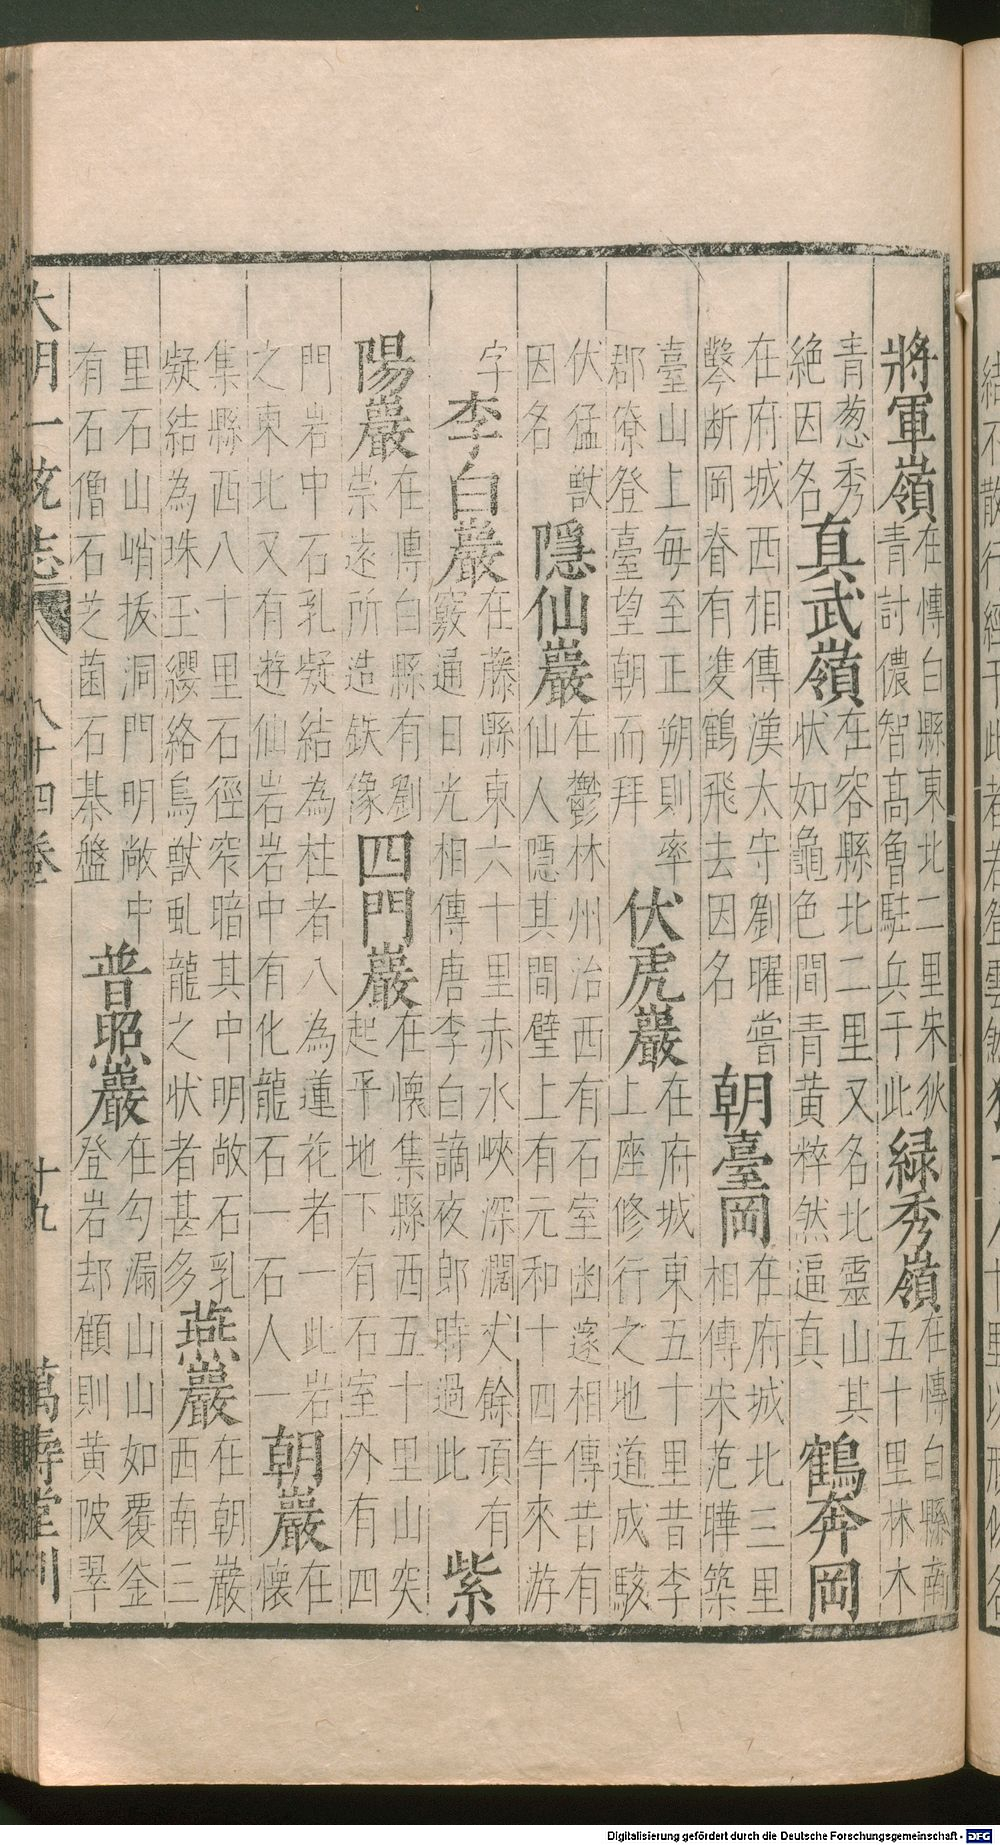 將軍嶺在愽白縣東北二里宋狄青討儂智高魯駐兵于此綠秀嶺在愽白縣南五十里林木
青葱秀絶因名真武嶺在容縣北二里又名北靈山其状如龜色間青黄粹然逼真鶴奔岡
在府城西相傳漢太守劉曜嘗鑿断岡脊有䨇鶴飛去因名朝臺岡在府城北三里相傳宋范曄築
臺山上每至正朔則率郡僚登臺望朝而拜伏虎巖在府城東五十里昔李上座修行之地道成駭
伏猛獸因名隱仙巖在鬱林州治西有石室幽邃相傳昔有仙人隱其間壁上有元和十四年來游
字李白巖在藤縣東六十里赤水峽深濶丈餘項有竅通日光相傳唐李白謫夜郎時過此紫
陽巖在愽白縣有劉崇逺所造鉄像四門巖在懷集縣西五十里山突起平地下有石室外有四
門岩中石乳凝結為柱者八為蓮花者一此岩之東北又有遊仙岩岩中有化龍石一石人一朝巖在懷
集縣西八十里石徑窄暗其中明敞石乳凝結為珠玉纓絡鳥獸虬龍之状者甚多燕巖在朝巖西南三
里石山峭拔洞門明敞中有石僧石芝菌石棊盤普照巖在勾漏山山如覆釜登岩却顧則黄陂翠
大明一統志 八十四卷 十九 萬壽堂刊
Digitalisierung gefördert durch die Deutsche Forschungsgemeinschaft - DFG